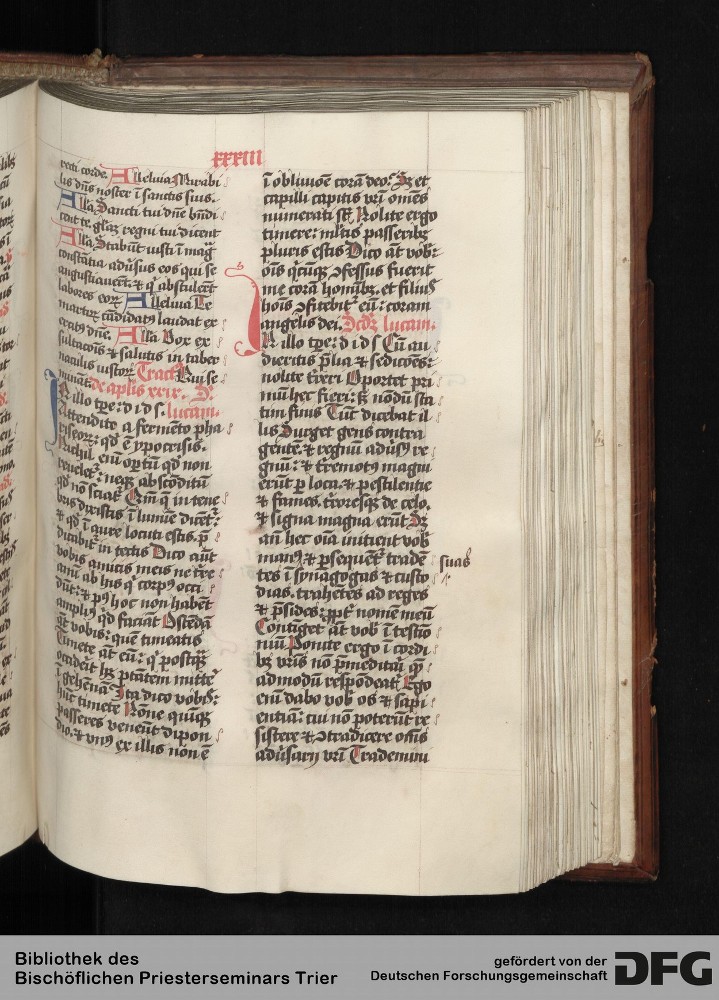 xxxiii
recti corde. Alleluia Mirabi
lis dn̄s noster ī sanctis suis.
Alla, Sancti tui dn̄e bn̄di
cent te glāz regni tui dicent
Alla, Stabūt iusti ī maḡ
constātia adūsus eos qui se
angustiauerūt ⁊ q̄ abstulerūt
labores eoꝝ Alleluia Te
martirū cādidatꝰ laudat ex
ercitꝰ dn̄e. Alla Vox ex
sultacōis ⁊ salutis in taber
naculis iustoꝝ Tractꝰ Qui se
mināt. de aplis xxix. Sꝫ
N illo tpe: d i d s. lucam.
Attendite a fermēto pha
riseoꝝ: qd̄ ē ypocrisis.
Nichil enī optū qd̄ non
reueleẗ: neqꝫ abscōditū
qd̄ nō sciaẗ Qm̄ q̄ in tene
bris dixistis ī lumīe diceẗ:
⁊ qd̄ ī aure locuti estis. p̄
dicabiẗ in tectis Dico aūt
vobis amicis meis ne t̄re
ami ab his q̄ corpꝰ occi
dūt: ⁊ pꝰ hoc non habēt
ampliꝰ qd̄ faciāt Ostēdā
aūt vobis: quē timeatis
Timete aūt eū: q̄ postqꝫ̄
occiderit hꝫ ptātem mitt̄e
ī gehēnā Ita dico vobis:
hūc timete Nōne quīqꝫ
passeres veneūt dipon
dio. ⁊ vnꝰ ex illis non ē
ī obliuiōe corā deo: Sꝫ et
capilli capitis vr̄i om̄es
numerati sūt Nolite ergo
timere: ml̄tis passeribꝫ
pluris estis Dico aūt vob:
oīs q̄cūqꝫ ꝯfessus fuerit
me corā hominibꝫ. et filiꝰ
hoīs ꝯfitebiẗ eū: coram
angelis dei. Scdꝫ lucam.
N illo tpe: d i d s Cū au
dieritis p̄lia ⁊ sediciōes:
nolite t̄reri Oportet pri
mū hec fieri: sꝫ nōdū sta
tim finis Tūc dicebat il
lis Surget gens contra
gentē. ⁊ regnū adūsꝰ re
gnū: ⁊ t̄remotꝰ magni
erūt p̲ loca. ⁊ pestilentie
⁊ fames. t̄roresqꝫ de celo.
⁊ signa magna erūt Sꝫ
an̄ hec oīa iniicient vob
manꝰ ⁊ p̲sequenẗ tradē suas
tes ī synagogas ⁊ custo
dias. trahētes ad reges
⁊ p̄sides: ꝓpt̄ nomē meū
Continget aūt vob ī testīo
niū Ponite ergo ī cordi
bꝫ vr̄is nō p̄meditari q̄
admodū respōdeatis Ego
enī dabo vob os ⁊ sapi
entiā: cui nō poterūt re
sistere ⁊ ꝯtradicere om̄s
adūsarij vr̄i Trademini
Bibliothek des
Bischöflichen Priesterseminars Trier
gefördert von der
Deutschen Forschungsgemeinschaft
DFG